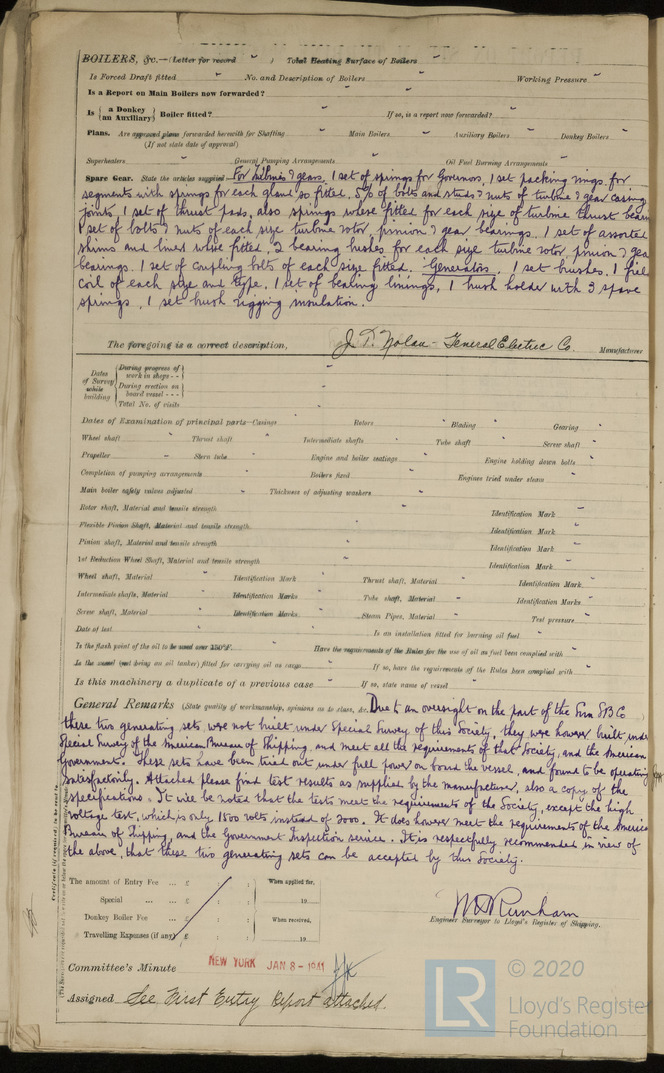 BOILERS, &c.—(Letter for record " ) Total Heating Surface of Boilers "
Is Forced Draft fitted " No. and Description of Boilers " Working Pressure "
Is a Report on Main Boilers now forwarded? "
Is { a Donkey / an Auxiliary } Boiler fitted? " If so, is a report now forwarded? "
Plans. Are approved plans forwarded herewith for Shafting " Main Boilers " Auxiliary Boilers " Donkey Boilers "
(If not state date of approval)
Superheaters " General Pumping Arrangements " Oil Fuel Burning Arrangements "
Spare Gear. State the articles supplied For Turbines & gears, 1 set of springs for Governors, 1 set packing rings for
segments with springs for each gland so fitted. 5% of bolts and studs & nuts of turbine & gear casing
joints, 1 set of thrust pads, also springs where fitted for each size of turbine thrust bearing
1 set of bolts & nuts of each size turbine rotor, pinion & gear bearings. 1 set of assorted
shims and liner where fitted, 2 bearing bushes for each size turbine rotor pinion & gear
bearings. 1 set of coupling bolts of each size fitted. Generators. 1 set brushes. 1 field
coil of each size and type, 1 set of bearing linings, 1 brush holder with 3 spare
springs, 1 set brush rigging insulation.
The foregoing is a correct description, J. T. Nolan - General Electric Co. Manufacturer
Dates of Survey while building
During progress of work in shops - -
During erection on board vessel - - -
Total No. of visits
Dates of Examination of principal parts—Casings " Rotors " Blading " Gearing "
Wheel shaft " Thrust shaft " Intermediate shafts " Tube shaft " Screw shaft "
Propeller " Stern tube " Engine and boiler seatings " Engine holding down bolts "
Completion of pumping arrangements " Boilers fixed " Engines tried under steam "
Main boiler safety valves adjusted " Thickness of adjusting washers "
Rotor shaft, Material and tensile strength " Identification Mark "
Flexible Pinion Shaft, Material and tensile strength " Identification Mark "
Pinion shaft, Material and tensile strength " Identification Mark "
1st Reduction Wheel Shaft, Material and tensile strength " Identification Mark "
Wheel shaft, Material " Identification Mark " Thrust shaft, Material " Identification Mark "
Intermediate shafts, Material " Identification Marks " Tube shaft, Material " Identification Marks "
Screw shaft, Material " Identification Marks " Steam Pipes, Material " Test pressure "
Date of test " Is an installation fitted for burning oil fuel "
Is the flash point of the oil to be used over 150°F. " Have the requirements of the Rules for the use of oil as fuel been complied with "
Is the vessel (not being an oil tanker) fitted for carrying oil as cargo " If so, have the requirements of the Rules been complied with "
Is this machinery a duplicate of a previous case " If so, state name of vessel "
General Remarks (State quality of workmanship, opinions as to class, &c. Due to an oversight on the part of the Sun SB Co
these two generating sets, were not built under Special Survey of this Society, they were however built under
Special Survey of the American Bureau of Shipping, and meet all the requirements of that Society, and the American
Government. These sets have been tried out under full power on board the vessel, and found to be operating
satisfactorily. Attached please find test results as supplied by the manufacturer, also a copy of the
specifications. It will be noted that the tests meet the requirements of the Society, except the high
voltage test, which is only 1500 volts instead of 2000. It does however meet the requirements of the American
Bureau of Shipping, and the Government Inspection service. It is respectfully, recommended in view of
the above, that these two generating sets can be accepted by this Society.
The amount of Entry Fee ... £ : : When applied for,
Special ... ... £ : : 19
Donkey Boiler Fee ... £ : : When received,
Travelling Expenses (if any) £ : : 19
Engineer Surveyor to Lloyd's Register of Shipping.
Committee's Minute NEW YORK JAN 8 - 1941
Assigned See First Entry Report attached.
LR © 2020
Lloyd's Register
Foundation